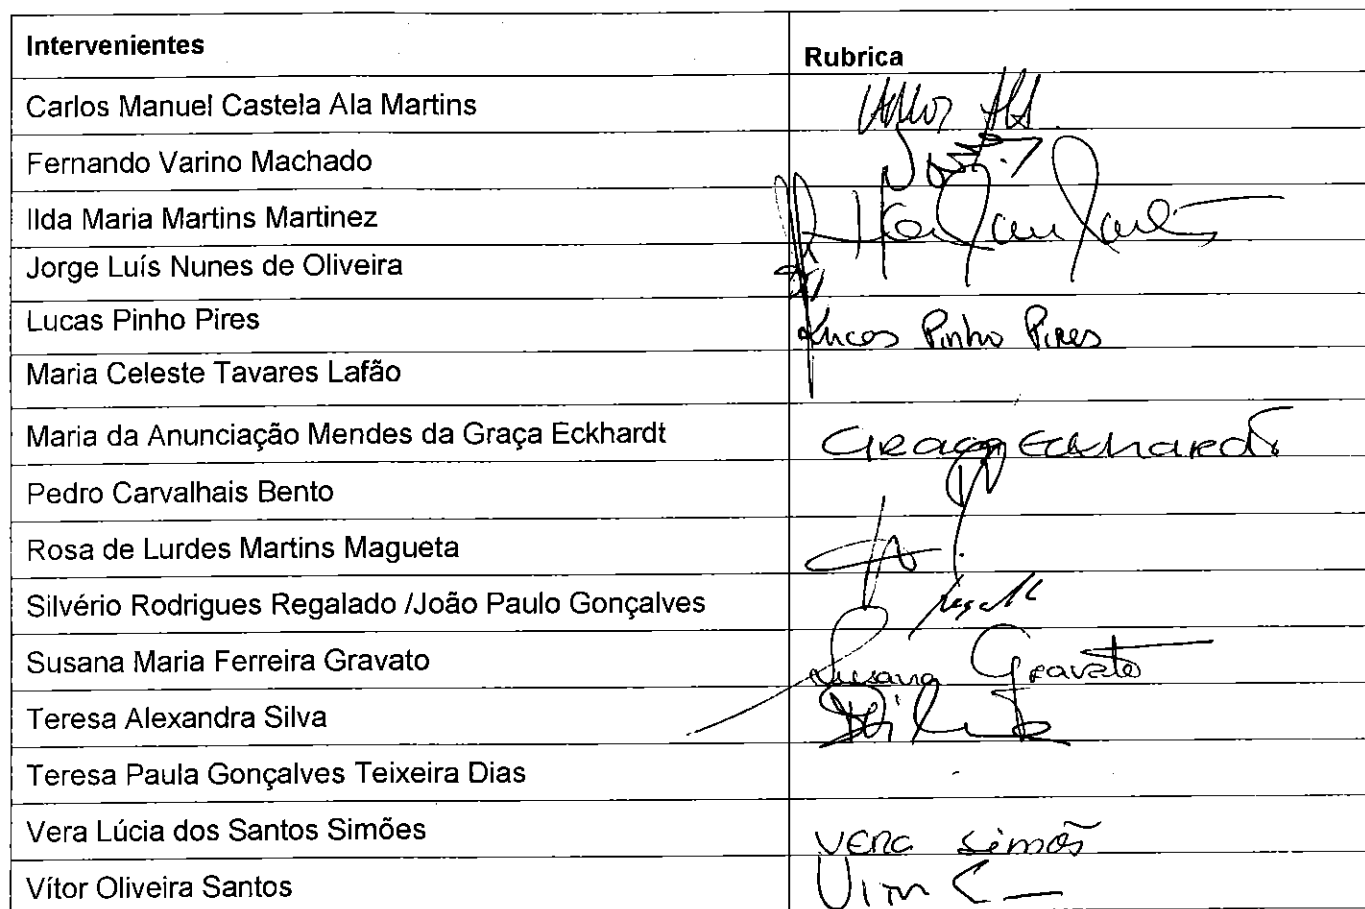 Intervenientes Rubrica
Carlos Manuel Castela Ala Martins Carlos Ala
Fernando Varino Machado
Ilda Maria Martins Martinez
Jorge Luís Nunes de Oliveira
Lucas Pinho Pires Lucas Pinho Pires
Maria Celeste Tavares Lafão
Maria da Anunciação Mendes da Graça Eckhardt Graça Eckhardt
Pedro Carvalhais Bento
Rosa de Lurdes Martins Magueta
Silvério Rodrigues Regalado /João Paulo Gonçalves
Susana Maria Ferreira Gravato Susana Gravato
Teresa Alexandra Silva
Teresa Paula Gonçalves Teixeira Dias
Vera Lúcia dos Santos Simões Vera Simões
Vítor Oliveira Santos